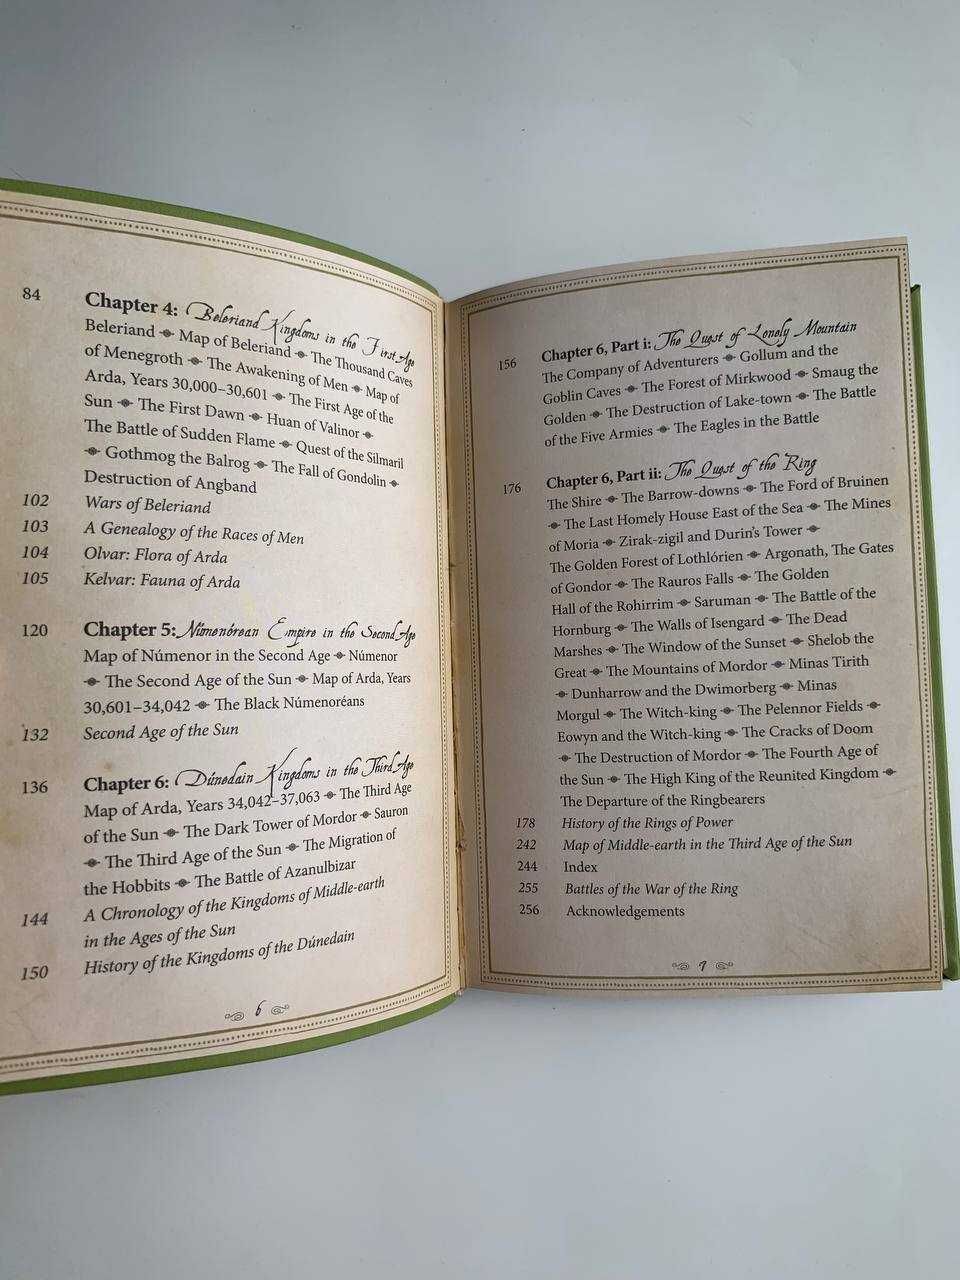 84 Chapter 4: Beleriand Kingdoms in the First Age
Beleriand Map of Beleriand The Thousand Caves
of Menegroth The Awakening of Men Map of
Arda, Years 30,000–30,601 The First Age of the
Sun The First Dawn Huan of Valinor
The Battle of Sudden Flame Quest of the Silmaril
Gothmog the Balrog The Fall of Gondolin
Destruction of Angband
102 Wars of Beleriand
103 A Genealogy of the Races of Men
104 Olvar: Flora of Arda
105 Kelvar: Fauna of Arda
120 Chapter 5: Númenórean Empire in the Second Age
Map of Númenor in the Second Age Númenor
The Second Age of the Sun Map of Arda, Years
30,601–34,042 The Black Númenoréans
132 Second Age of the Sun
136 Chapter 6: Dúnedain Kingdoms in the Third Age
Map of Arda, Years 34,042–37,063 The Third Age
of the Sun The Dark Tower of Mordor Sauron
The Third Age of the Sun The Migration of
the Hobbits The Battle of Azanulbizar
144 A Chronology of the Kingdoms of Middle-earth
in the Ages of the Sun
150 History of the Kingdoms of the Dúnedain
6
156 Chapter 6, Part i: The Quest of Lonely Mountain
The Company of Adventurers Gollum and the
Goblin Caves The Forest of Mirkwood Smaug the
Golden The Destruction of Lake-town The Battle
of the Five Armies The Eagles in the Battle
176 Chapter 6, Part ii: The Quest of the Ring
The Shire The Barrow-downs The Ford of Bruinen
The Last Homely House East of the Sea The Mines
of Moria Zirak-zigil and Durin's Tower
The Golden Forest of Lothlórien Argonath, The Gates
of Gondor The Rauros Falls The Golden
Hall of the Rohirrim Saruman The Battle of the
Hornburg The Walls of Isengard The Dead
Marshes The Window of the Sunset Shelob the
Great The Mountains of Mordor Minas Tirith
Dunharrow and the Dwimorberg Minas
Morgul The Witch-king The Pelennor Fields
Eowyn and the Witch-king The Cracks of Doom
The Destruction of Mordor The Fourth Age of
the Sun The High King of the Reunited Kingdom
The Departure of the Ringbearers
178 History of the Rings of Power
242 Map of Middle-earth in the Third Age of the Sun
244 Index
255 Battles of the War of the Ring
256 Acknowledgements
7